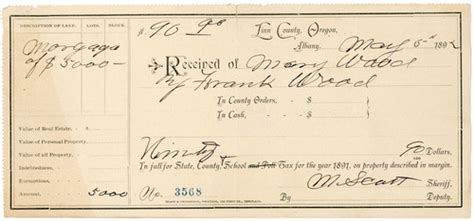 DESCRIPTION OF LAND. LOTS. BLOCK.
Mortgage
of $5000 —
Value of Real Estate, $
Value of Personal Property,
Indebtedness,
Exemptions,
Amount, 5000
$90
Linn County, Oregon,
Albany, May 5th 1892
Received of Mary Wood
By Frank Wood
In County Orders, $
In Cash, $
Ninety Dollars,
In full for State, County & School and Poll Tax for the year 1891, on property described in margin.
No. 3568
M. Scott Sheriff,
Deputy.